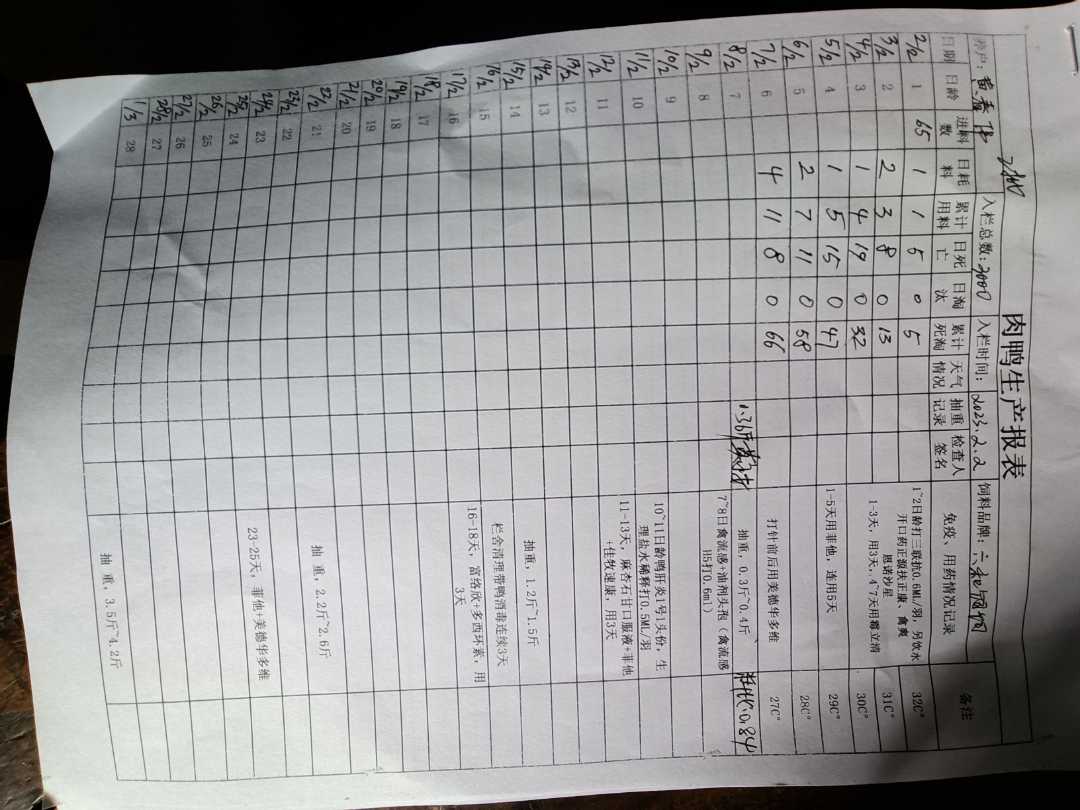 肉鸭生产报表
养户: 黄春伟 入栏总数: 3000 入栏时间: 2023.2.2 饲料品牌: 六和饲料
日期 日龄 进料数 日耗料 累计用料 日死亡 日淘汰 累计死淘 天气情况 抽重记录 检查人签名 免疫、用药情况记录 备注
2/2 1 65 1 1 5 0 5 1~2日龄打三联抗0.6ML/羽，另饮水 32C°
3/2 2 2 3 8 0 13 开口药正源扶正康、禽爽 31C°
恩诺沙星
4/2 3 1 4 19 0 32 1-3天，用3天，4~7天用霉立清 30C°
5/2 4 1 5 15 0 47 1-5天用菲他，连用5天 29C°
6/2 5 2 7 11 0 58 28C°
7/2 6 4 11 8 0 66 打针前后用美德华多维 27C°
8/2 7 0.36斤 抽重，0.3斤~0.4斤 0.84
9/2 8 7~8日禽流感+油剂头孢（禽流感
H5打0.6ml）
10/2 9
11/2 10 10~11日龄鸭肝炎1号1头份，生
理盐水稀释打0.5ML/羽
12/2 11 11-13天，麻杏石甘口服液+菲他
+佳牧速康，用3天
13/2 12
14/2 13
15/2 14 抽重，1.2斤~1.5斤
16/2 15 栏舍清理带鸭消毒连续3天
17/2 16 16-18天，富络欣+多西环素，用
3天
18/2 17
19/2 18
20/2 19
21/2 20
22/2 21 抽 重，2.2斤~2.6斤
23/2 22
24/2 23 23-25天，菲他+美德华多维
25/2 24
26/2 25
27/2 26
28/2 27
1/3 28 抽 重，3.5斤~4.2斤